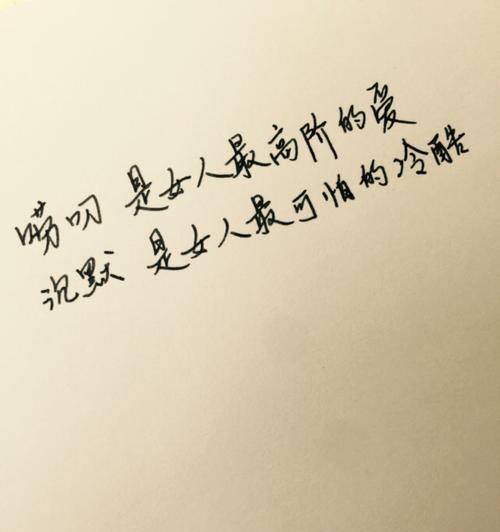 唠叨 是女人最高阶的爱
沉默 是女人最可怕的冷酷